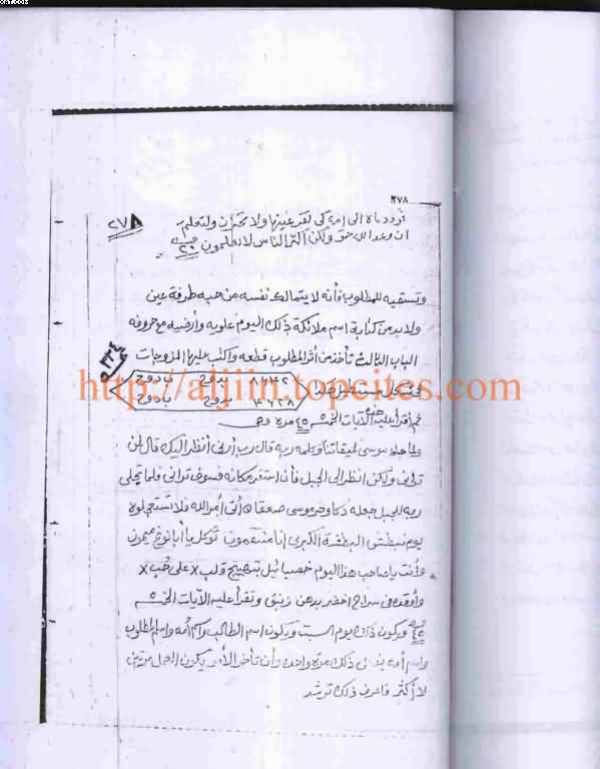 ٢٧٨
فرددناه الى امه كى تقر عينها ولا تحزن ولتعلم
٢٧٨
ان وعد الله حق ولكن اكثر الناس لا يعلمون
وتسقيه للمطلوب فأنه لا يتمالك نفسه من حبه طرفة عين
ولا بد من كتابة اسم ملائكة ذلك اليوم علويه وأرضيه مع حروفه
الباب الثالث تأخذ من أثر المطلوب قطعه واكتب عليها المزوجات
٨٦٤٢ بدوح بادوح
http://aljiin.topcites.com
٨٦٤٢ بدوح بادوح
ثم أقرأ عليه الآيات الخمسه ٤٥ مرة وهى
ولما جاء موسى لميقاتنا وكلمه ربه قال رب أرنى أنظر اليك قال لن
ترانى ولكن انظر الى الجبل فأن استقر مكانه فسوف ترانى فلما تجلى
ربه للجبل جعله دكا وخر موسى صعقا أتى أمر الله فلا تستعجلوه
يوم نبطش البطشة الكبرى إنا منتقمون توكل يا أبا نوخ ميمون
وأنت يا صاحب هذا اليوم خصيائيل بتهييج قلب x على حب x
وأوقده فى سراج اخضر بدهن زنبق وتقرأ عليه الآيات الخمسه
ويكون ذلك يوم السبت ويكون اسم الطالب واسم أمه واسم المطلوب
واسم أمه ذلك مرة واحده وأن تأخر الأمر يكون العمل مرتين
لا أكثر فاعرف ذلك ترشد